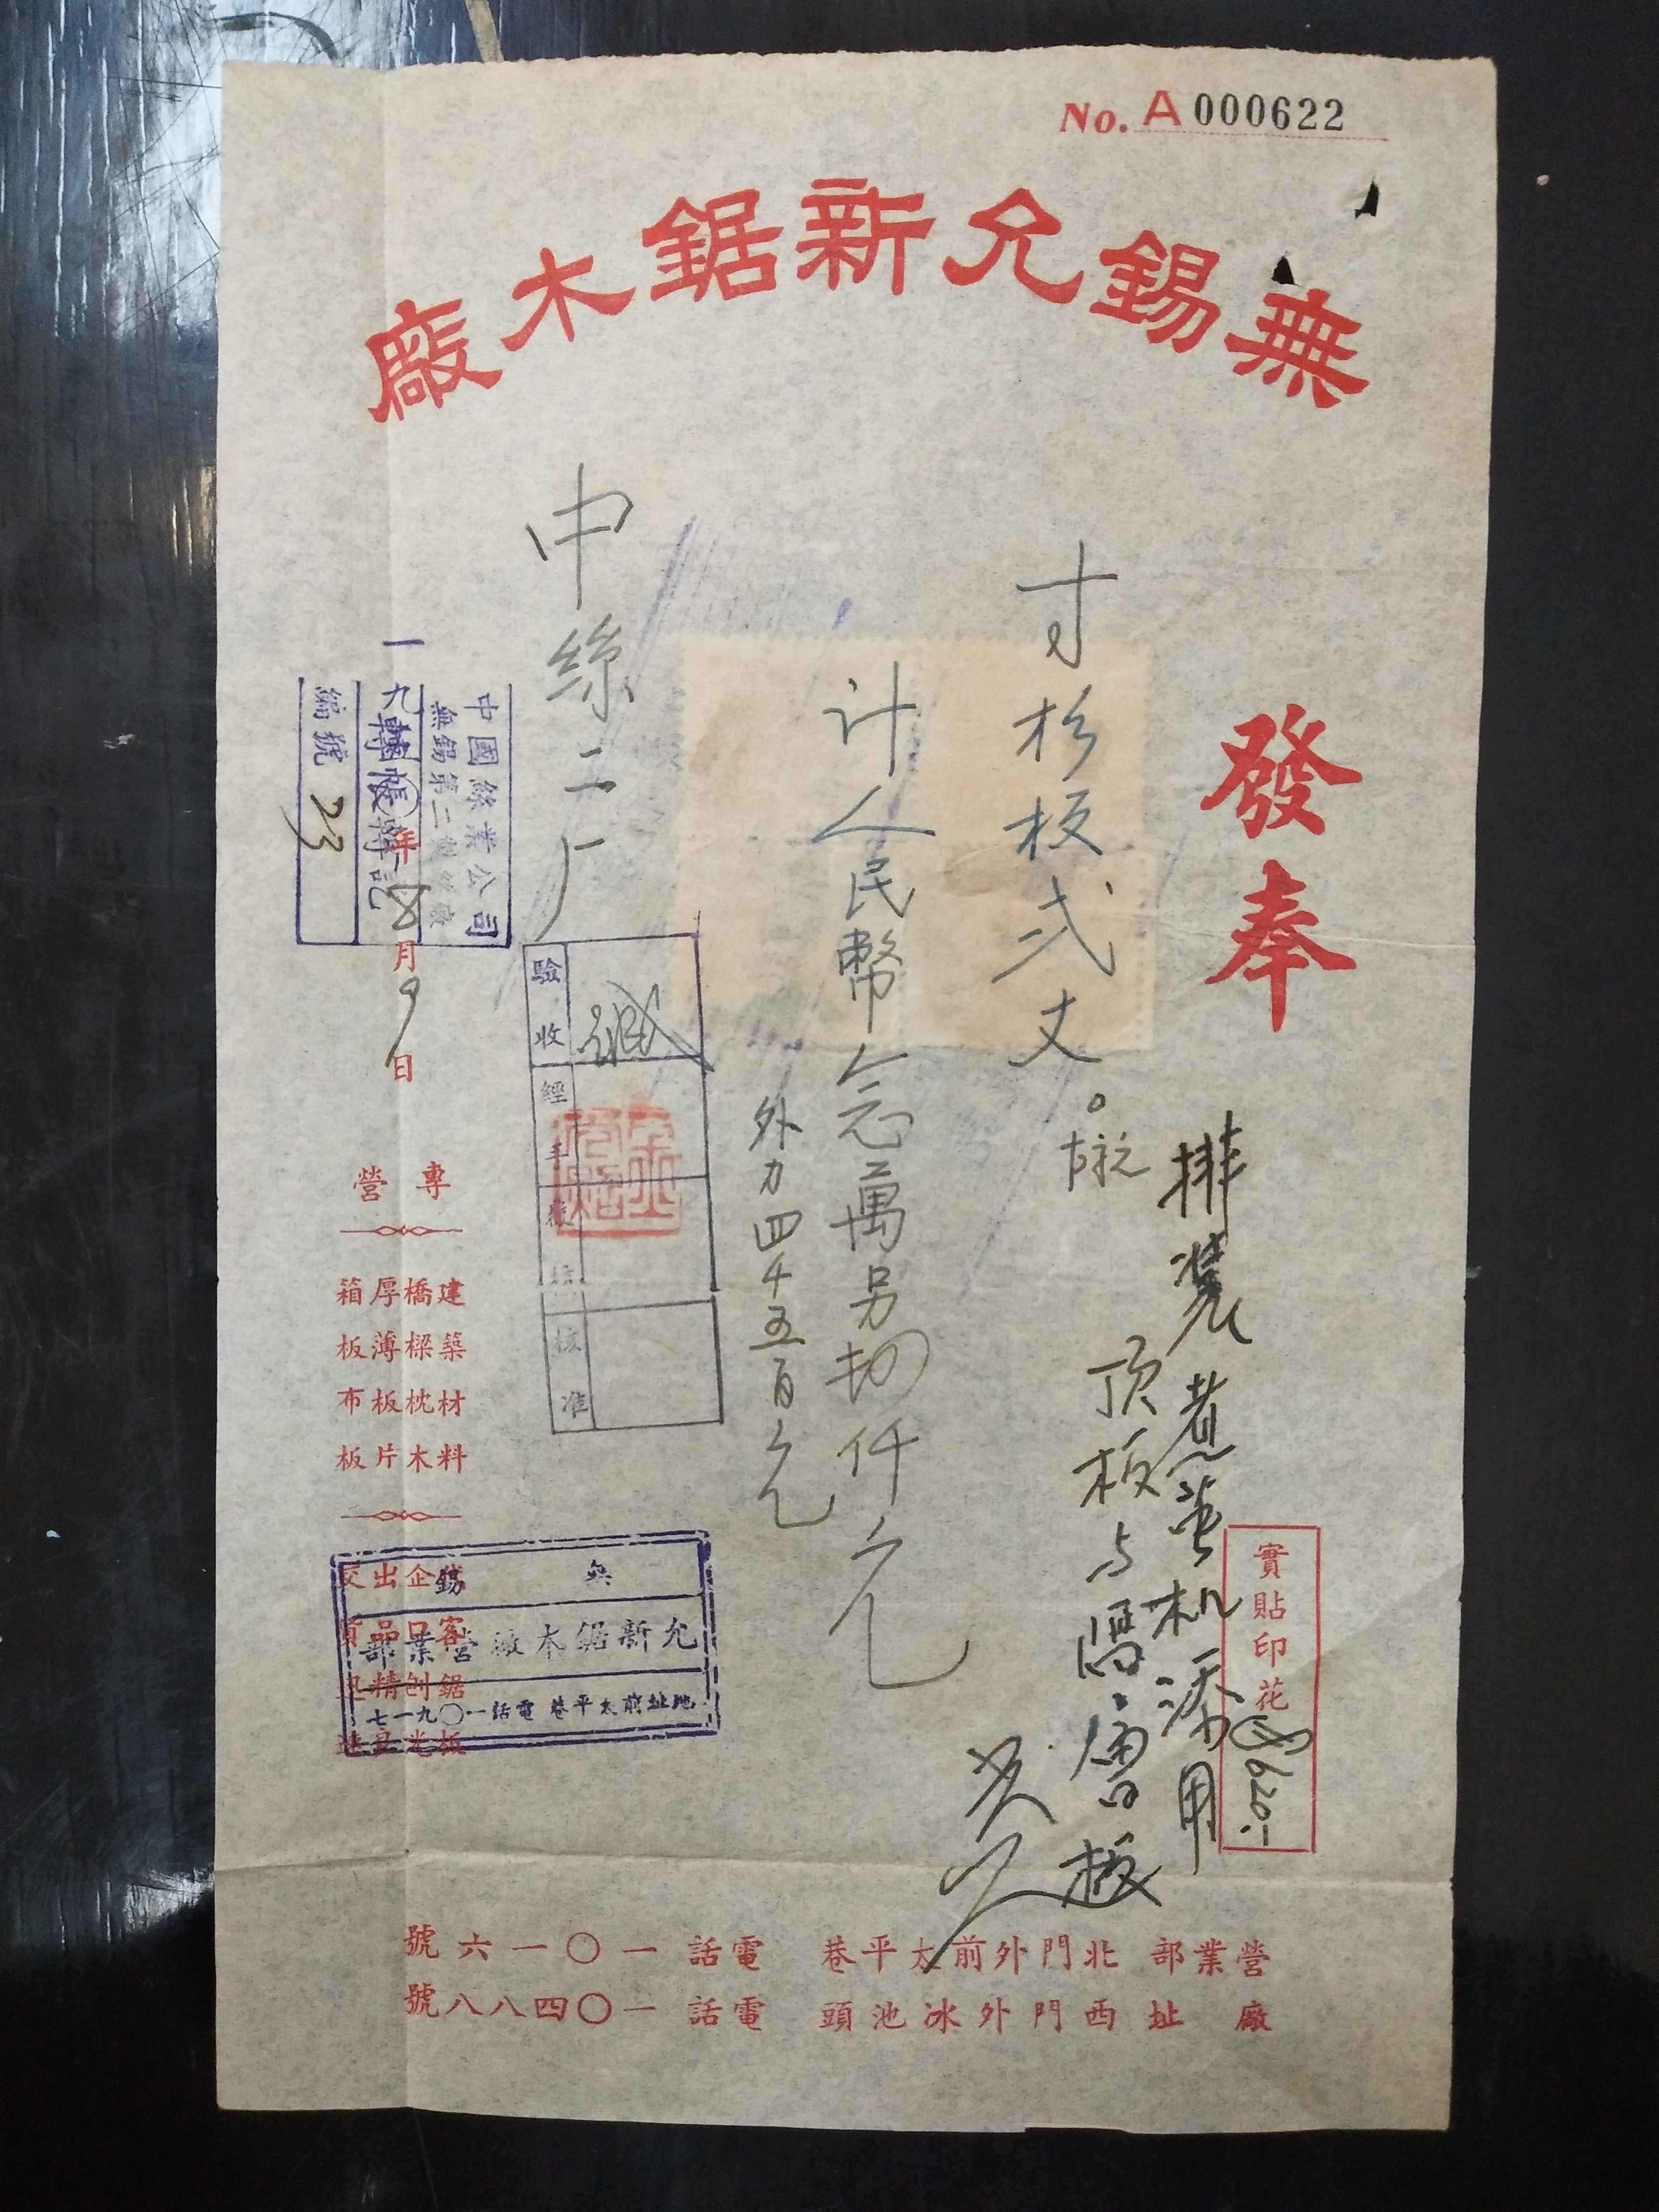 No. A 000622
無錫允新鋸木廠
發奉
排裝煮繭机添用
頂板与隔層板
寸杉板弍丈。
計人民幣念萬另扨仟元
外力四千五百元
中絲二厂
實貼印花
620.-
驗收
經手
復核
核准
中國絲業公司
無錫第二製絲廠
轉帳傳票
編號 23
一九 年 月 9 日
專營
建築材料
橋樑枕木
厚薄板片
箱板布板
鋸板
刨光
無錫
允新鋸木廠營業部
地址前太平巷 電話一〇九一七
營業部 北門外前太平巷 電話 一〇一六號
廠址 西門外冰池頭 電話 一〇四八八號